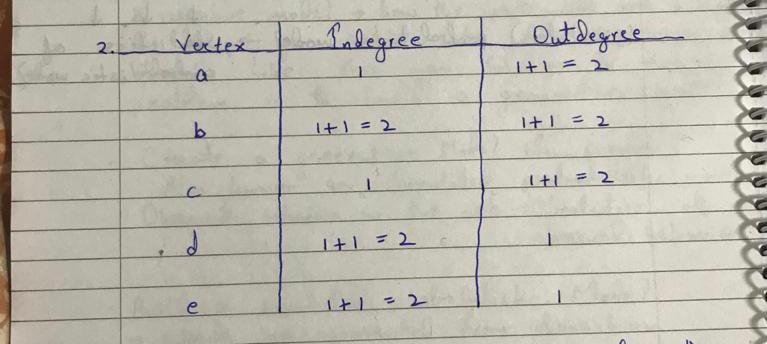 2. Vertex Indegree Outdegree
a 1 1+1 = 2
b 1+1 = 2 1+1 = 2
c 1 1+1 = 2
d 1+1 = 2 1
e 1+1 = 2 1